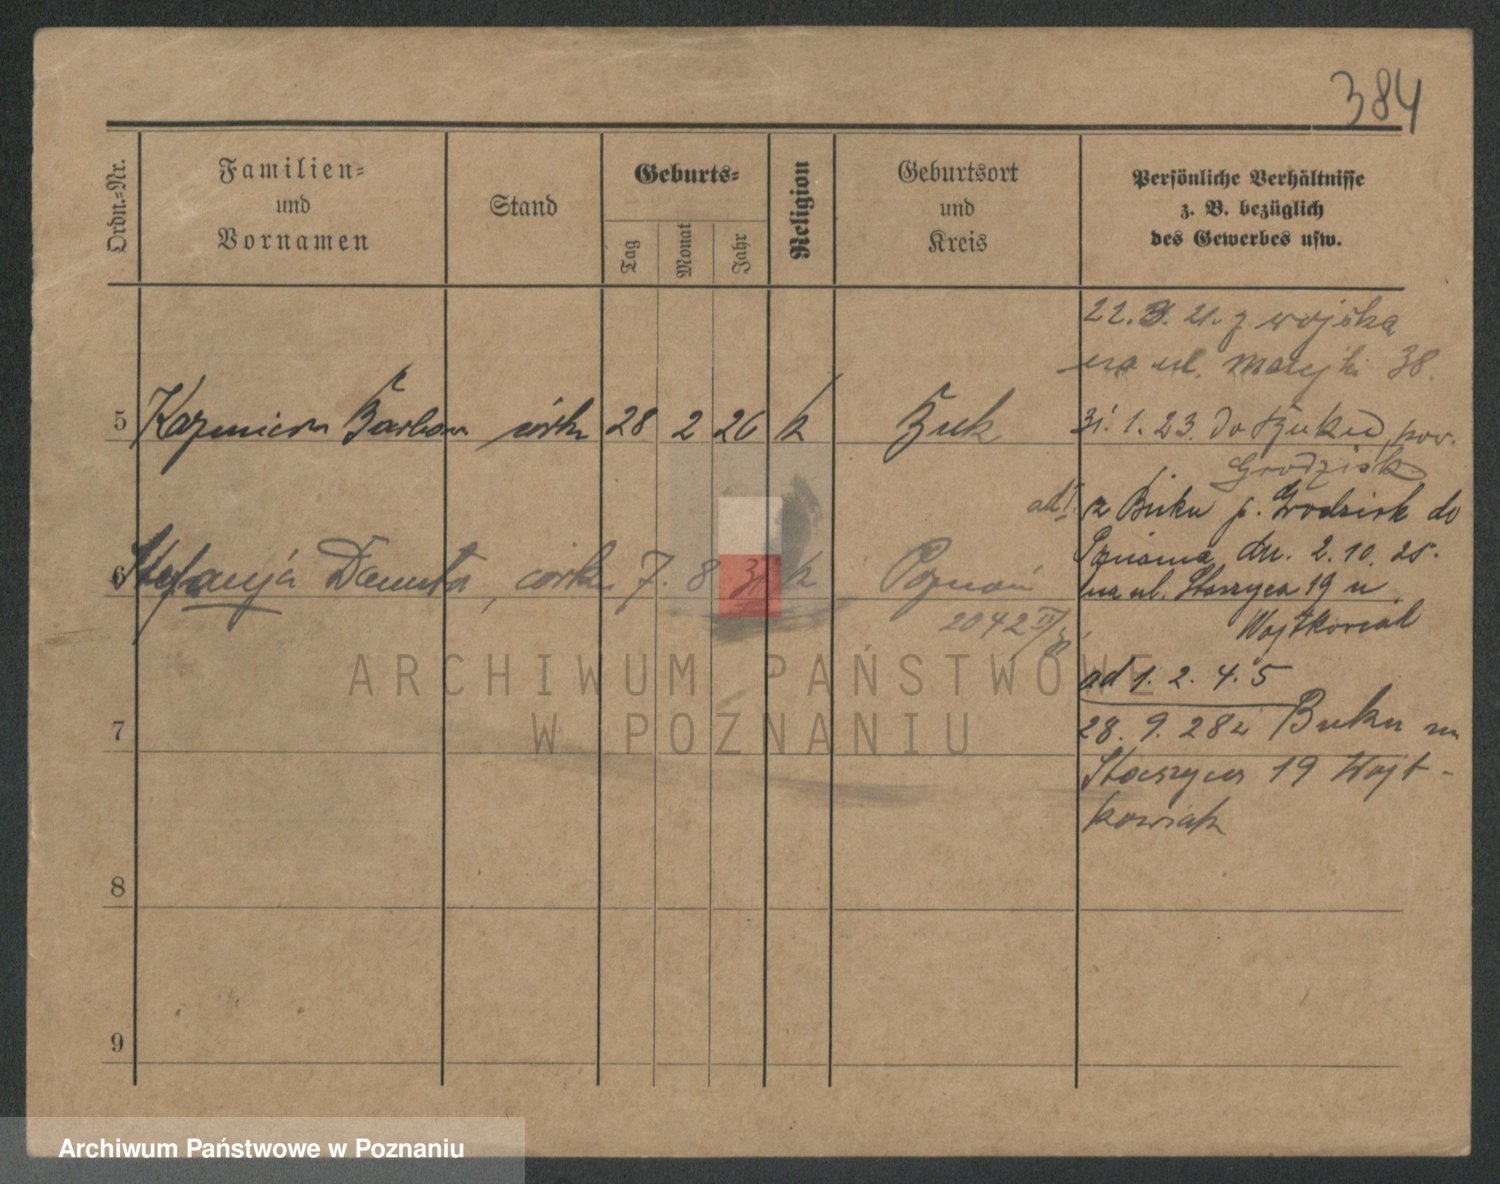 384
Ordn.=Nr.
Familien=
und
Vornamen
Stand
Geburts=
Tag
Monat
Jahr
Religion
Geburtsort
und
Kreis
Persönliche Verhältnisse
z. B. bezüglich
des Gewerbes usw.
22. 3. 21. z wojska
na ul. Matejki 38.
5 Kazmiera Barbara córka 28 2 26 k Buk
31. 1. 23. do Buku pow.
Grodzisk
ad I. z Buku p. Grodzisk do
Poznania dn. 2. 10. 25.
6 Stefanja Danuta, córka 7. 8 31 k Poznań
na ul. Staszyca 19 u
2042 II/31
Wojtkowiak
ad 1. 2. 4. 5
7
28. 9. 28 z Buku na
Staszyca 19 Wojt-
kowiak
8
9
ARCHIWUM PAŃSTWOWE
W POZNANIU
Archiwum Państwowe w Poznaniu